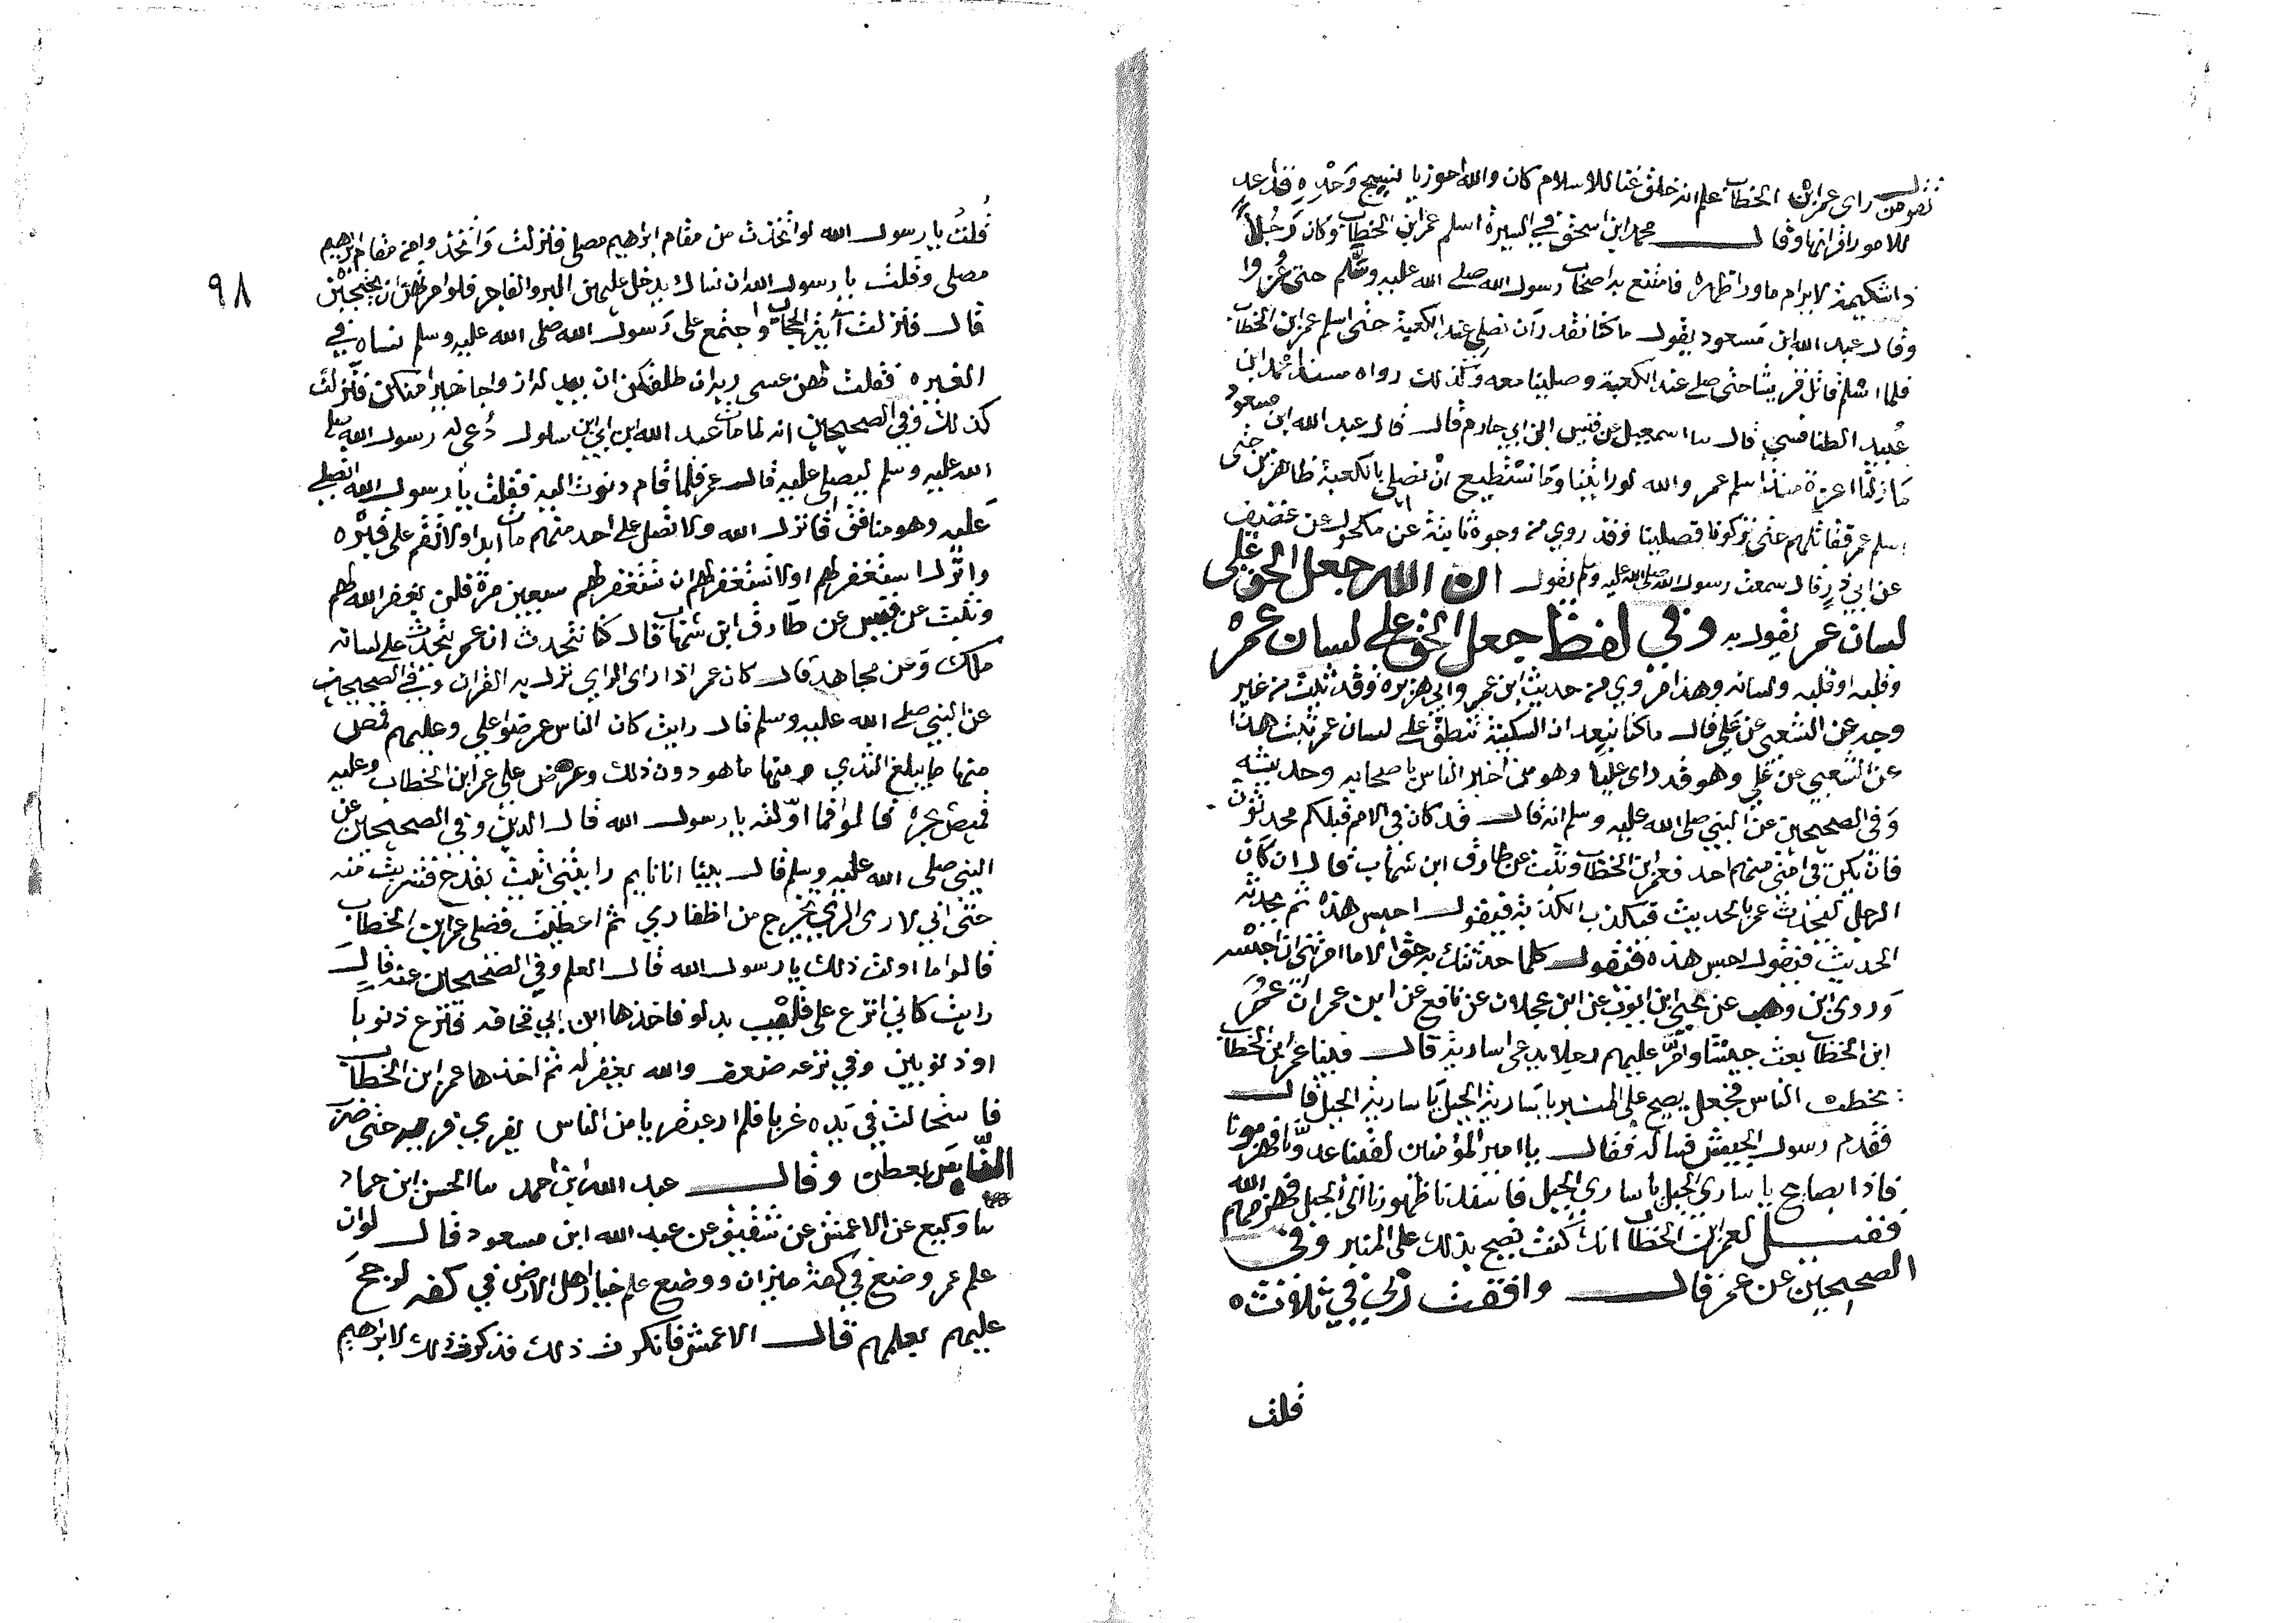 تقول من راى عمر بن الخطاب علم انه خلق غنا للاسلام كان والله احوزيا نسيج وَحْدِه قد اعد
للامور اقرانها وقال محمد ابن اسحق في السيرة اسلم عمر ابن الخطاب وكان رَجُلاً
ذا شكيمة لا يرام ما ورا ظهره فامتنع به اصحاب رسول الله صلى الله عليه وسلم حتى عُزوا
وقال عبد الله ابن مسعود يقول ما كنا نقدر ان نصلي عند الكعبة حتى اسلم عمر ابن الخطاب
فلما اسلم قاتل قريشا حتى صلى عند الكعبة وصلينا معه وكذلك رواه مسندا محمد ابن
عُبيد الطنافسي قال سا اسمعيل عن قيس ابن ابي حازم قال قال عبد الله ابن مسعود
مَا زلنا اعزة منذ اسلم عمر والله لو رايتنا وَمَا نستطيع ان نصلي بالكعبة ظاهرين حتى
اسلم عمر فقاتلهم حتى تركونا فصلينا وقد روي من وجوه ثابتة عن مكحول عن غضيف
عن ابي ذر قال سمعت رسول الله صلى الله عليه وسلم يقول ان الله جعل الحق على
لسان عمر يقول به وفي لفظ جعل الحق على لسان عمر
وقلبه او قلبه ولسانه وهذا مروي من حديث ابن عمر وابي هريرة وقد ثبت من غير
وجه عن الشعبي عن علي قال ما كنا نبعد ان السكينة تنطق على لسان عمر ثبت هذا
عن الشعبي عن علي وهو قد راى عليا وهو من اخبر الناس باصحابه وحديثه
وَفي الصحيحين عن النبي صلى الله عليه وسلم انه قال قد كان في الامم قبلكم محدثون
فان يكن في امتي منهم احد فعمر ابن الخطاب وثبت عن طارق ابن شهاب قال ان كان
الرجل ليحدث عمر بالحديث فيكذب الكذبة فيقول احبس هذه ثم يحدثه
الحديث فيقول احبس هذه فيقول كلما حدثتك به حق الا ما امرتني ان احبسه
وَروى ابن وهب عن يحيى ابن ايوب عن ابن عجلان عن نافع عن ابن عمر ان عُمَر
ابن الخطاب بعث جيشا وامّر عليهم رجلا يدعى سارية قال فبينا عمر ابن الخطاب
يخطب الناس فجعل يصيح على المنبر يا سارية الجبل يا سارية الجبل قال
فقدم رسول الجيش فساله فقال يا امير المؤمنين لقينا عدونا فهزمونا
فاذا بصايح يا ساري الجبل يا ساري الجبل فاسندنا ظهورنا الى الجبل فهزمهم الله
فقيل لعمر ابن الخطاب انك كنت تصيح بذلك على المنبر وفي
الصحيحين عن عمر قال وافقت ربي في ثلاث ه
قلت
٩٨
قُلتُ يا رسول الله لو اتخذت من مقام ابراهيم مصلى فنزلت وَاتخذوا من مقام ابراهيم
مصلى وقلت يا رسول الله ان نساك يدخل عليهن البر والفاجر فلو امرتهن ان يحتجبن
قال فنزلت آية الحجاب واجتمع على رَسول الله صلى الله عليه وسلم نساه في
الغيرة فقلت لهن عسى ربه ان طلقكن ان يبدله ازواجا خيرا منكن فنزلت
كذلك وفي الصحيحين انه لما مات عبد الله ابن ابي ابن سلول دُعي له رسول الله صلى
الله عليه وسلم ليصلي عليه قال عمر فلما قام دنوت اليه فقلت يا رسول الله اتصلي
عليه وهو منافق فانزل الله ولا تصل على احد منهم مات ابدا ولا تقم على قبره
وانزل استغفر لهم او لا تستغفر لهم ان تستغفر لهم سبعين مرة فلن يغفر الله لهم
وثبت عن قيس عن طارق ابن شهاب قال كنا نتحدث ان عمر يتحدث على لسانه
ملك وَعن مجاهد قال كان عمر اذا راى الراي نزل به القران وَفي الصحيحين
عن النبي صلى الله عليه وسلم قال رايت كان الناس عرضوا علي وعليهم قمص
منها ما يبلغ الثدي ومنها ما هو دون ذلك وعرض علي عمر ابن الخطاب وعليه
قميص يجره قالوا فما اوّلته يا رسول الله قال الدين وفي الصحيحين عن
النبي صلى الله عليه وسلم قال بينا انا نايم رايتني اتيت بقدح فشربت منه
حتى اني لارى الري يخرج من اظفاري ثم اعطيت فضلي عمر ابن الخطاب
قالوا ما اولت ذلك يا رسول الله قال العلم وفي الصحيحين عنه قال
رايت كاني انزع على قليب بدلو فاخذها ابن ابي قحافة فنزع ذنوبا
او ذنوبين وفي نزعه ضعف والله يغفر له ثم اخذها عمر ابن الخطاب
فاستحالت في يَده غربا فلم ار عبقريا من الناس يفري فريه حتى ضرب
النّاس بعطن وقال عبد الله ابن احمد سا الحسن ابن حماد
سا وكيع عن الاعمش عن شقيق عن عبد الله ابن مسعود قال لو ان
علم عمر وضع في كفة ميزان ووضع علم خيار اهل الارض في كفه لرجح
عليهم بعلمهم قال الاعمش فانكرت ذلك فذكرت ذلك لابراهيم